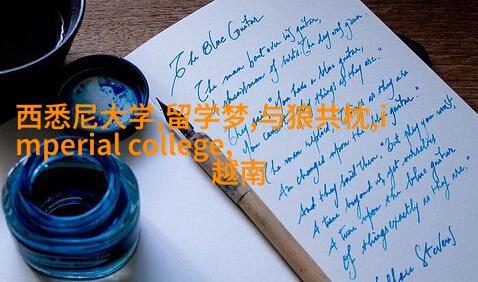 The Blue Guitar
The man bent over his guitar,
A shearsman of sorts. The day was green.
They said, "You have a blue guitar,
You do not play things as they are."
The man replied, "Things as they are
Are changed upon the blue guitar."
And they said then, "But play, you must,
A tune beyond us, yet ourselves,
A tune upon the blue guitar
Of things exactly as they are."
Wallace Stevens
西悉尼大学,留学梦,与狼共枕,i
mperial college,
越南